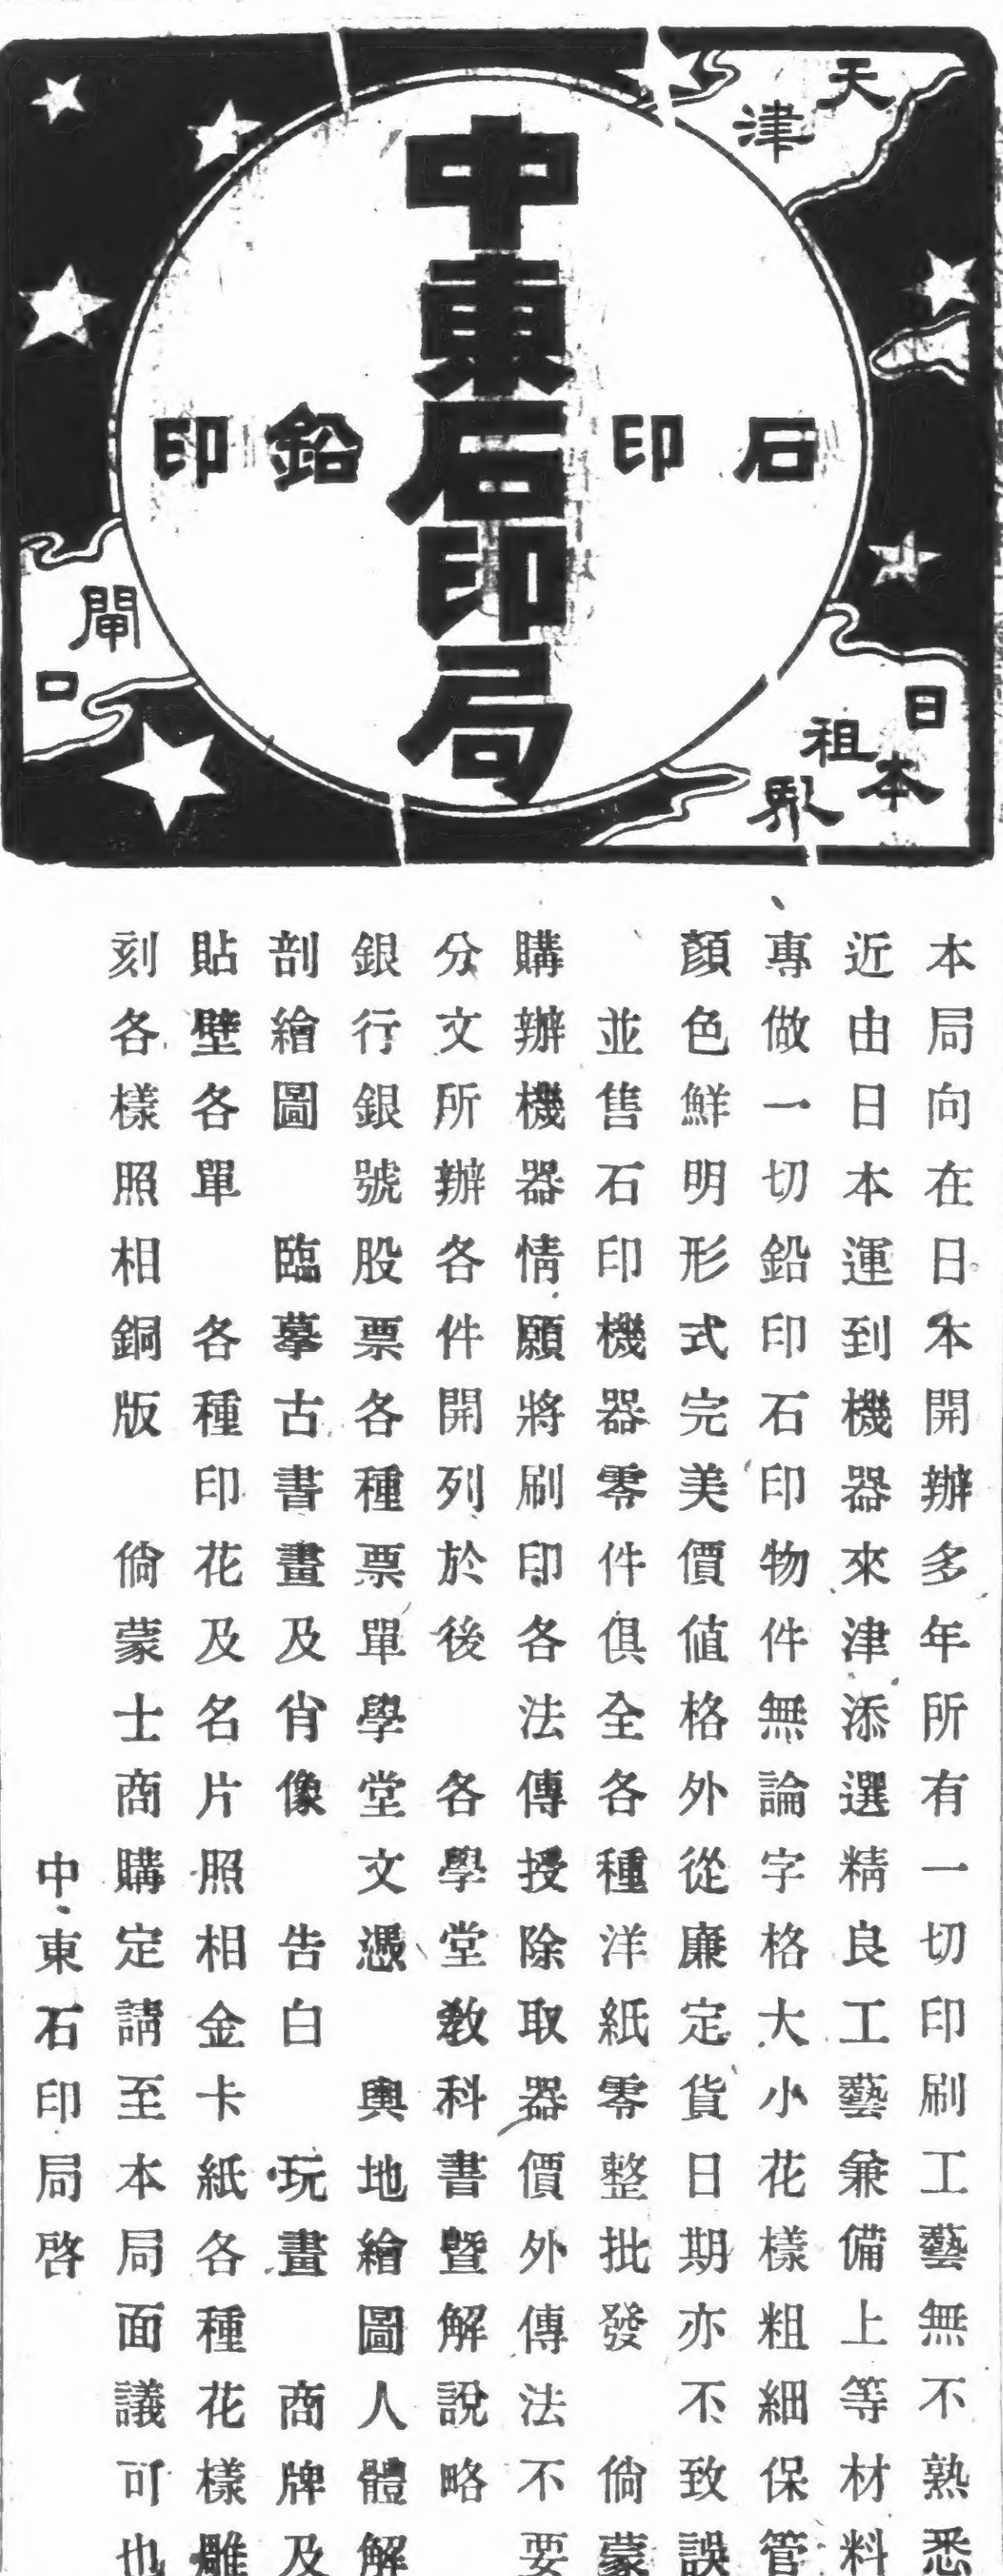 天津
中東石印局
石印
鉛印
日本租界
閘口
本局向在日本開辦多年所有一切印刷工藝無不熟悉
近由日本運到機器來津添選精良工藝兼備上等材料
專做一切鉛印石印物件無論字格大小花樣粗細保管
顏色鮮明形式完美價值格外從廉定貨日期亦不致誤
並售石印機器零件俱全各種洋紙零整批發 倘蒙
購辦機器情願將刷印各法傳授除取器價外傳法不要
分文所辦各件開列於後 各學堂教科書暨解說略
銀行銀號股票各種票單學堂文憑 輿地繪圖人體解
剖繪圖 臨摹古書畫及肖像 告白 玩畫 商牌及
貼壁各單 各種印花及名片照相金卡紙各種花樣雕
刻各樣照相銅版 倘蒙士商購定請至本局面議可也
中東石印局啓